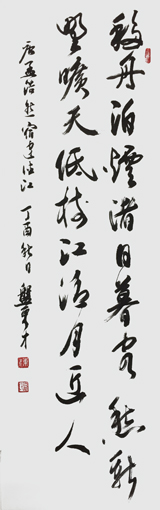 移舟泊烟渚日暮客愁新
野旷天低树江清月近人
唐孟浩然宿建德江 丁酉秋日